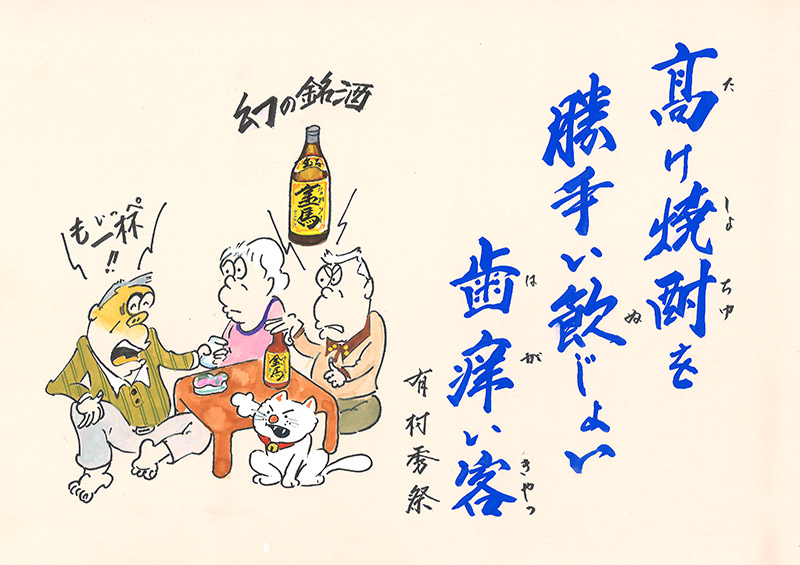 髙け焼酎を
た しょ ちゅ
勝手い飲じょい
ぬ
歯痒い客
は が きゃつ
有村秀祭
幻の銘酒
金馬
も一杯!!
いっぺ
金馬